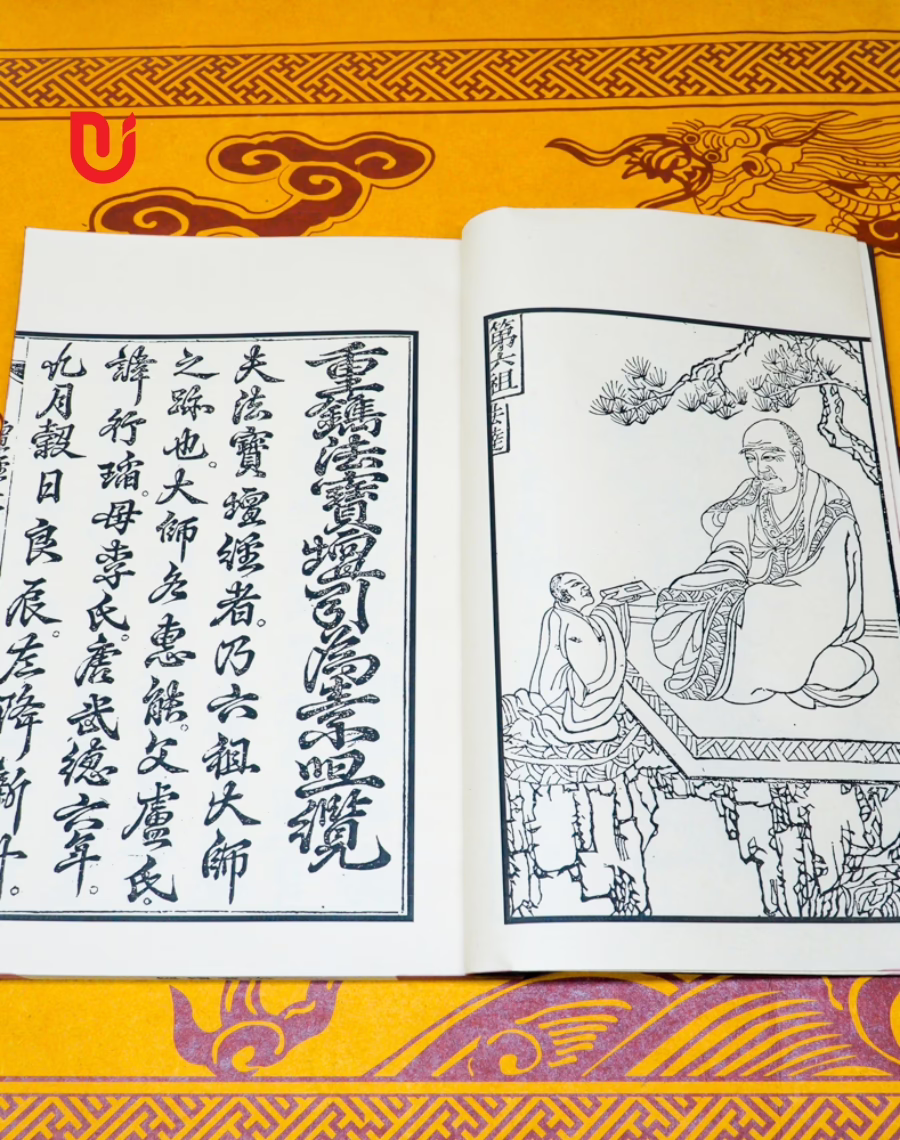 Ui
第六祖
法達
重鐫法寶壇引為
夫法寶壇經者。乃六祖大師
之跡也。大師名惠能。父盧氏。
諱行瑫。母李氏。唐武德六年。
九月穀日良辰。左降新州。